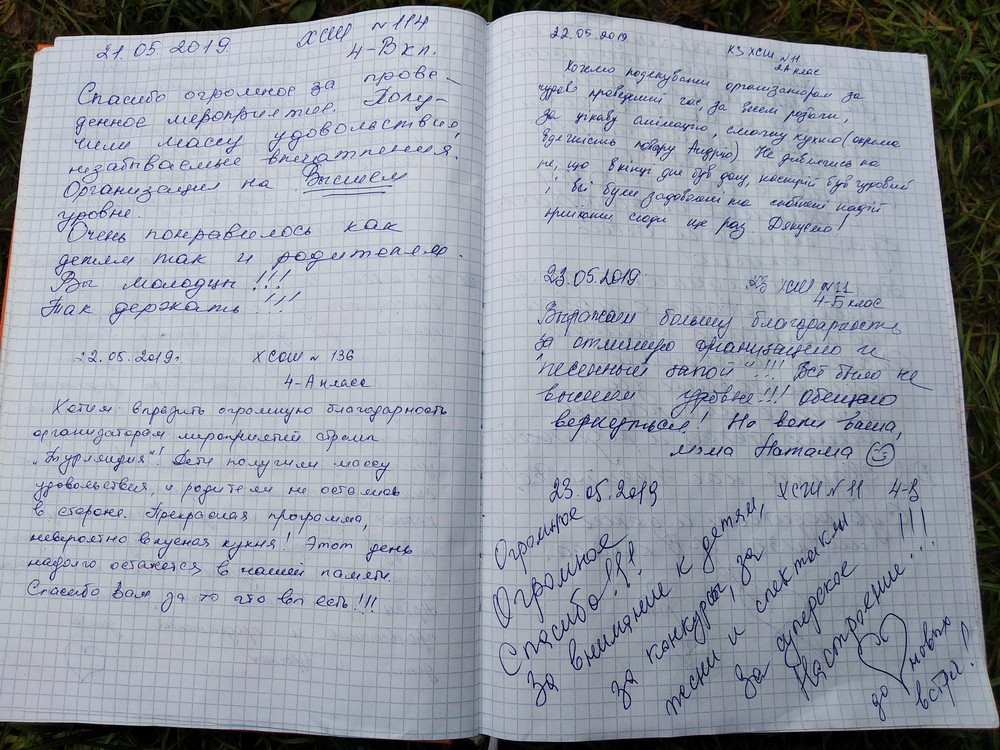 21.05.2019 ХСШ №114
4-В кл.
Спасибо огромное за прове-
денное мероприятие. Полу-
чили массу удовольствия,
незабываемые впечатления.
Организация на Высшем
уровне.
Очень понравилось как
детям так и родителям.
Вы молодцы!!!
Так держать!!!
22.05.2019г. ХСОШ №136
4-А класс
Хотим выразить огромную благодарность
организаторам мероприятий страны
"Турляндия"! Дети получили массу
удовольствия, и родители не остались
в стороне. Прекрасная программа,
невероятно вкусная кухня! Этот день
надолго останется в нашей памяти.
Спасибо Вам за то что вы есть!!!
22.05.2019
КЗ ХСШ №11
клас
Хочемо подякувати організаторам за
чудово проведений час, за
за цікаву анімацію, смачну кухню (окрема
вдячність повару Андрію) Не дивлячись на
те, що в кінці дня був дощ, настрій був чудовий
і всі були задоволені та
приїхати сюди ще раз. Дякуємо!
23.05.2019 ХСШ №11
4-Б клас
Выражаем большую благодарность
за отличную организацию и
"песенный запой"!!! Всё было на
высшем уровне!!! Обещаю
вернуться! На веки ваша,
мама Наташа
23.05.2019 ХСШ №11 4-В
Огромное
Огромное
Спасибо!!!
За внимание к детям,
за конкурсы, за
песни и спектакли
За суперское
Настроение!!!
до новых
встреч!